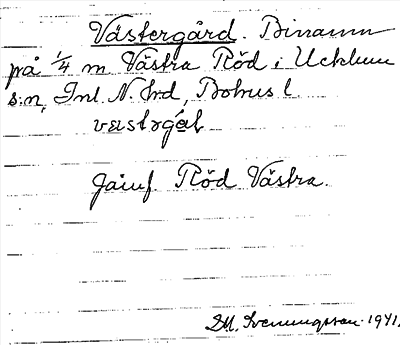 Västergård. Binamn
på 1/4 m Västra Röd i Ucklum
s:n, Inl. N. Hrd, Bohus l.
Jämf Röd Västra.
S.M. Svenungsson 1941.